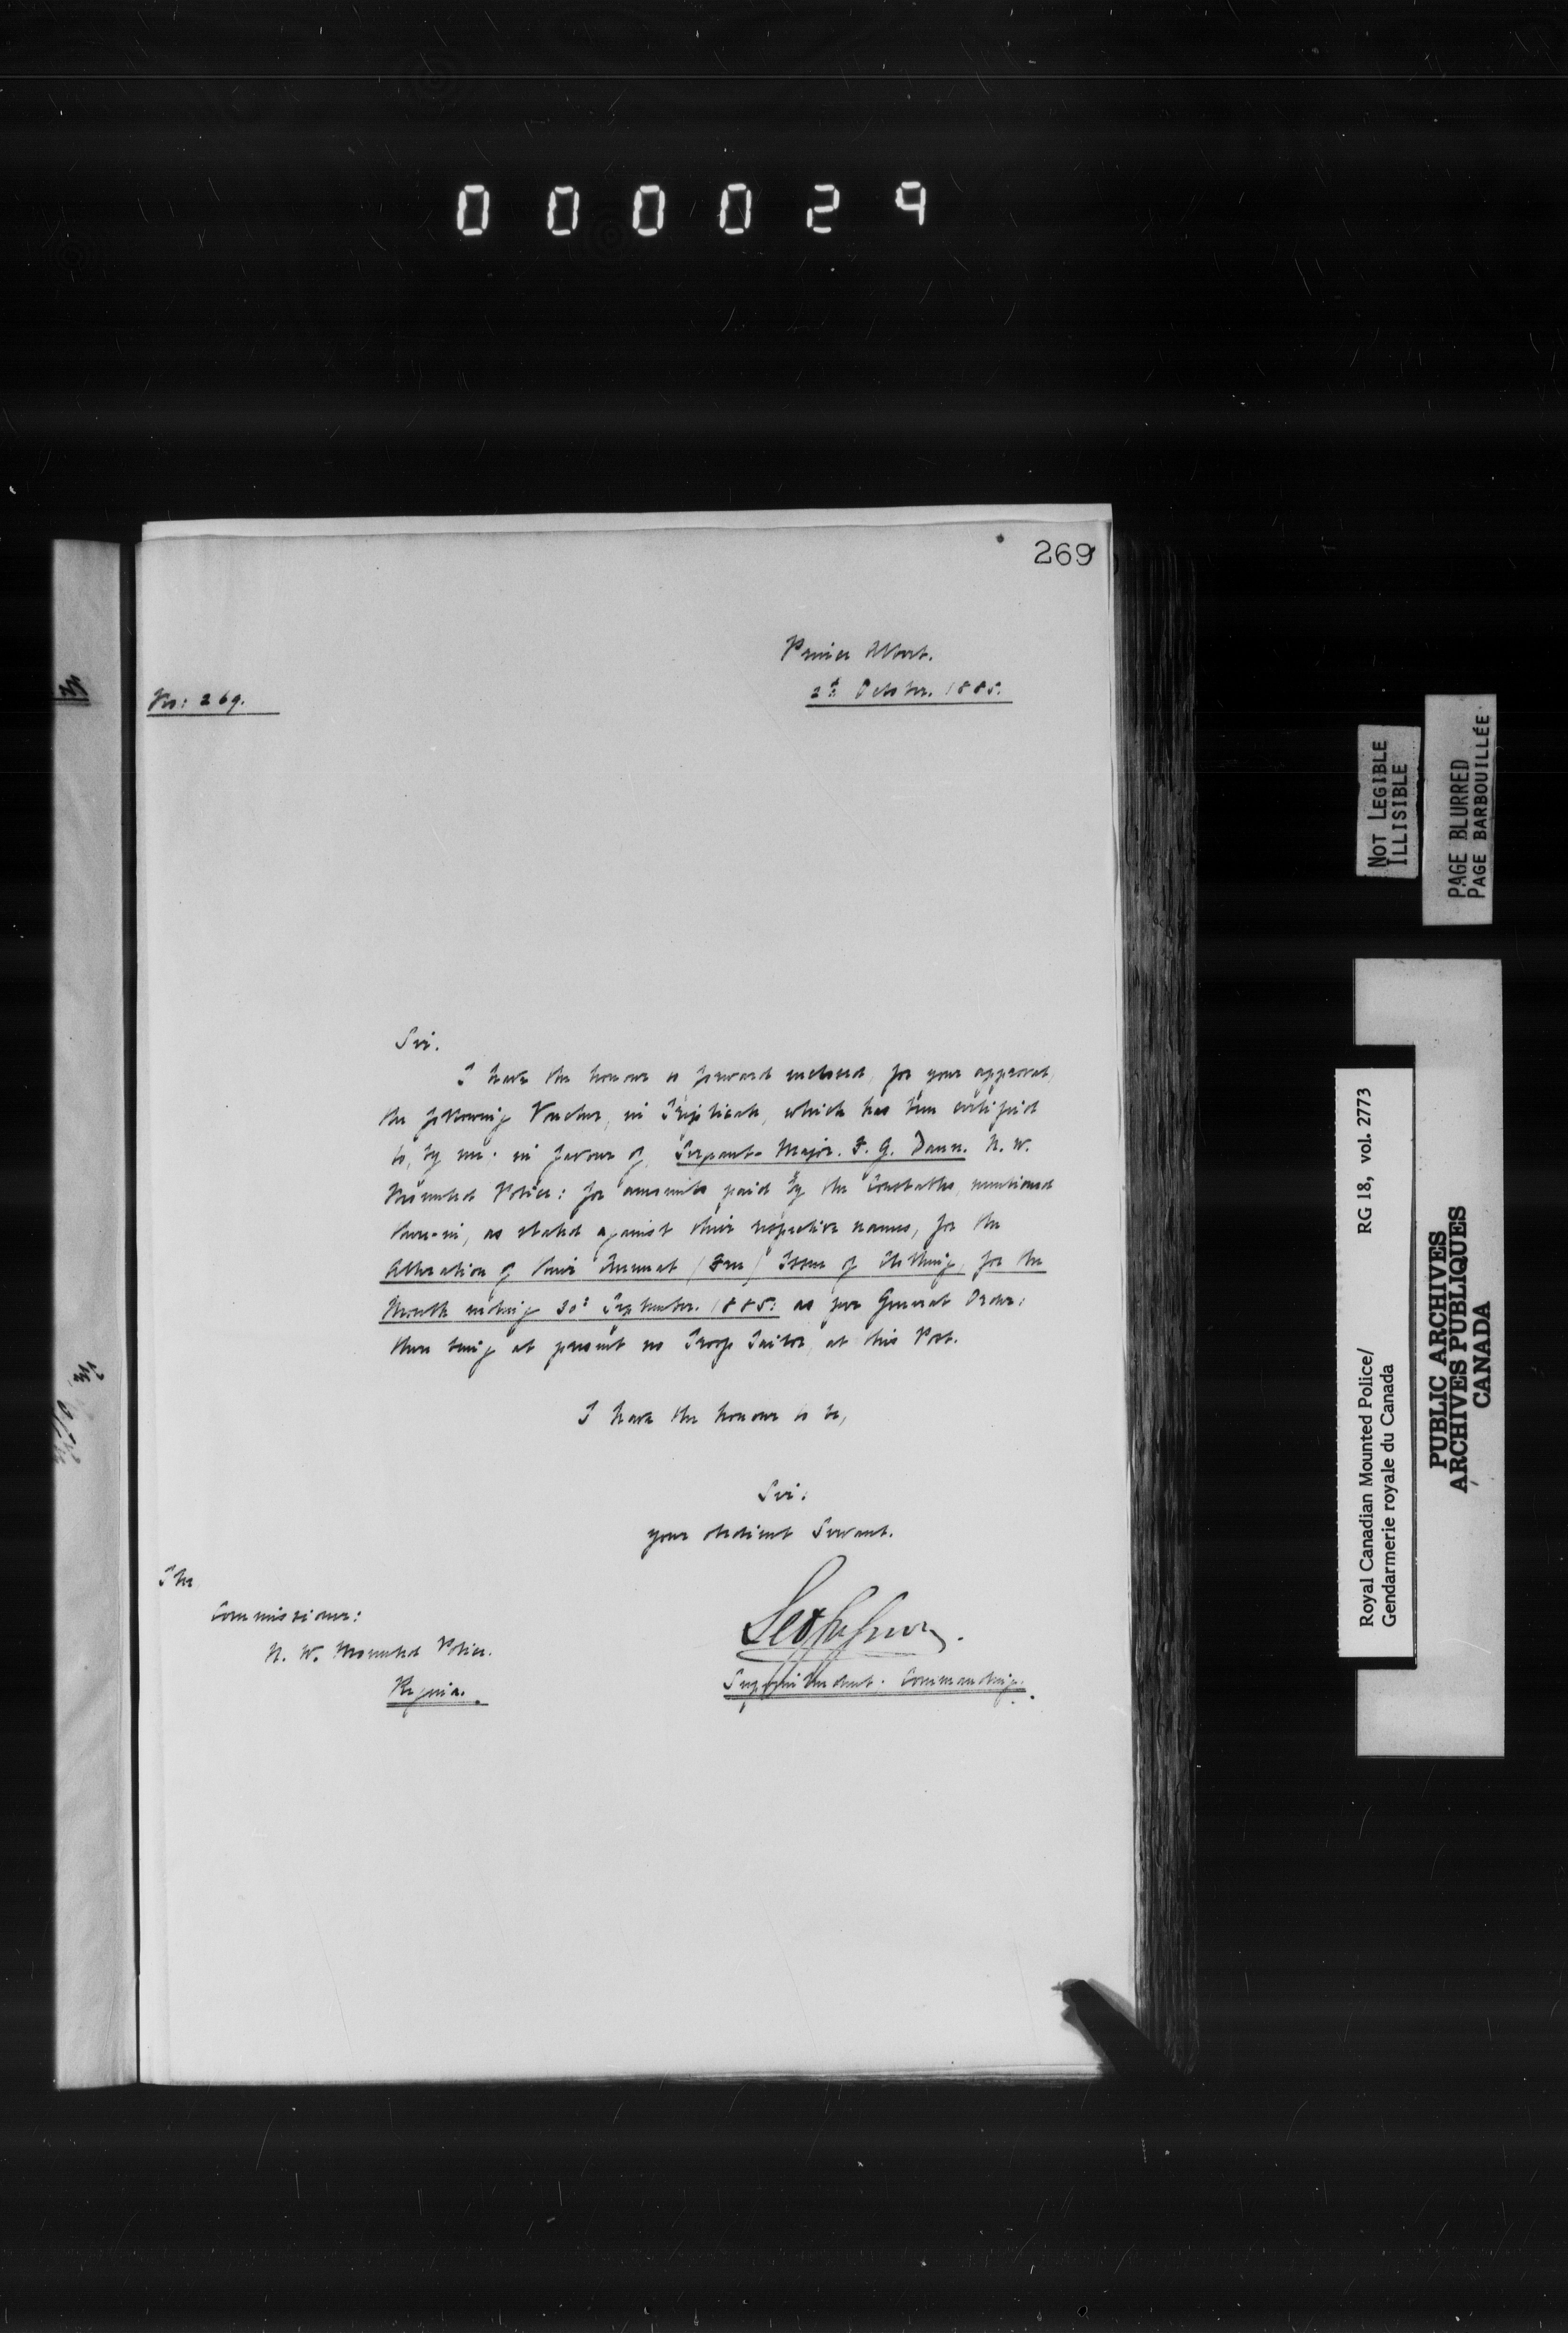 000029
269
Prince Albert.
2d October. 1885.
No: 269.
Sir.
I have the honour to forward enclosed, for your approval,
the following Voucher, in Triplicate, which has been certified
to, by me: in favour of, Sergeant-Major. F. G. Dann. N. W.
Mounted Police: for amounts paid by the Constables, mentioned
there-in, as stated against their respective names, for the
Alteration of their Annual (Free) Issue of Clothing, for the
Month ending 30th September. 1885: as per General Order:
there being at present no Troop Tailor, at this Post.
I have the honour to be,
Sir:
your obedient Servant.
Superintendent. Commanding.
The
Commissioner:
N. W. Mounted Police.
Regina.
NOT LEGIBLE
ILLISIBLE
PAGE BLURRED
PAGE BARBOUILLÉE
Royal Canadian Mounted Police/ RG 18, vol. 2773
Gendarmerie royale du Canada
PUBLIC ARCHIVES
ARCHIVES PUBLIQUES
CANADA